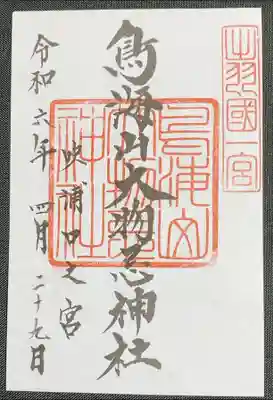 出羽國一宮
鳥海山大物忌神社
鳥海山
神社
吹浦口之宮
令和六年 四月二十九日